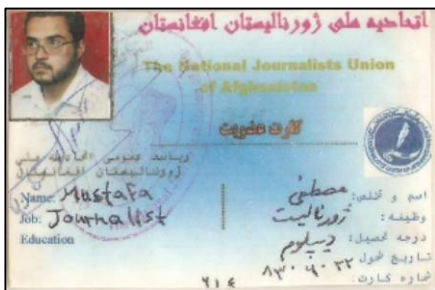 اتحادیه ملی ژورنالیستان افغانستان
The National Journalists Union
of Afghanistan
کارت عضویت
ریاست عمومی اتحادیه ملی
ژورنالیستان افغانستان
Name: Mustafa
Job: Journalist
Education
اسم و تخلص: مصطفی
وظیفه: ژورنالیست
درجه تحصیل: دیپلوم
تاریخ شمول
شماره کارت: ۲۱۴